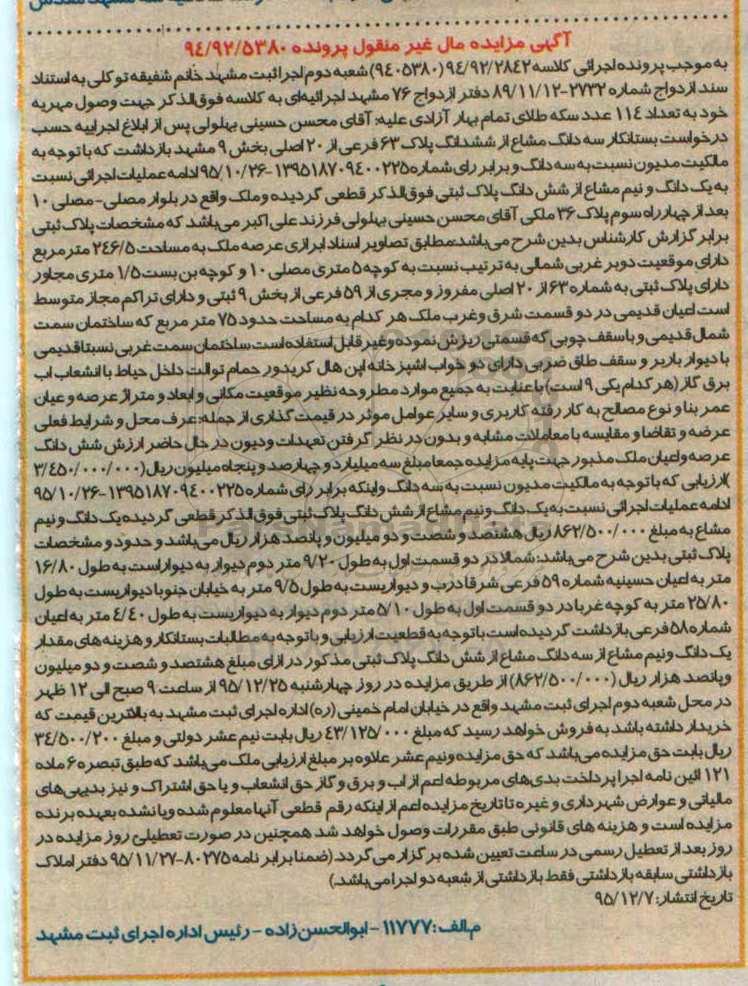 آگهی مزایده مال غیر منقول پرونده ۹۴/۹۲/۵۳۸۰
به موجب پرونده اجرائی کلاسه ۹۴/۹۲/۲۸۴۲ (۹۴۰۵۳۸۰) شعبه دوم اجرا ثبت مشهد خانم شفیقه توکلی به استناد
سند ازدواج شماره ۲۷۳۲-۸۹/۱۱/۱۲ دفتر ازدواج ۷۶ مشهد اجرائیه‌ای به کلاسه فوق‌الذکر جهت وصول مهریه
خود به تعداد ۱۱۴ عدد سکه طلای تمام بهار آزادی علیه: آقای محسن حسینی بهلولی پس از ابلاغ اجراییه حسب
درخواست بستانکار سه دانگ مشاع از ششدانگ پلاک ۶۳ فرعی از ۲۰ اصلی بخش ۹ مشهد بازداشت که با توجه به
مالکیت مدیون نسبت به سه دانگ و برابر رای شماره ۱۳۹۵۱۸۷۰۹۴۰۰۲۲۵-۹۵/۱۰/۲۶ ادامه عملیات اجرائی نسبت
به یک دانگ و نیم مشاع از شش دانگ پلاک ثبتی فوق‌الذکر قطعی گردیده و ملک واقع در بلوار مصلی- مصلی ۱۰
بعد از چهارراه سوم پلاک ۳۶ ملکی آقای محسن حسینی بهلولی فرزند علی اکبر می‌باشد که مشخصات پلاک ثبتی
برابر گزارش کارشناس بدین شرح می‌باشد:مطابق تصاویر اسناد ابرازی عرصه ملک به مساحت ۲۴۶/۵ متر مربع
دارای موقعیت دوبر غربی شمالی به ترتیب نسبت به کوچه ۵ متری مصلی ۱۰ و کوچه بن بست ۱/۵ متری مجاور
دارای پلاک ثبتی به شماره ۶۳ از ۲۰ اصلی مفروز و مجری از ۵۹ فرعی از بخش ۹ ثبتی و دارای تراکم مجاز متوسط
است اعیان قدیمی در دو قسمت شرق و غرب ملک هر کدام به مساحت حدود ۷۵ متر مربع که ساختمان سمت
شمال قدیمی و باسقف چوبی که قسمتی ریزش نموده و غیر قابل استفاده است ساختمان سمت غربی نسبتا قدیمی
با دیوار باربر و سقف طاق ضربی دارای دو خواب اشپزخانه اپن هال کریدور حمام توالت داخل حیاط با انشعاب اب
برق گاز (هر کدام یکی ۹ است) با عنایت به جمیع موارد مطروحه نظیر موقعیت مکانی و ابعاد و متراژ عرصه و عیان
عمر بنا و نوع مصالح به کار رفته کاربری و سایر عوامل موثر در قیمت گذاری از جمله: عرف محل و شرایط فعلی
عرضه و تقاضا و مقایسه با معاملات مشابه و بدون در نظر گرفتن تعهدات و دیون در حال حاضر ارزش شش دانگ
عرصه واعیان ملک مذبور جهت پایه مزایده جمعا مبلغ سه میلیارد و چهارصد و پنجاه میلیون ریال (۳/۴۵۰/۰۰۰/۰۰۰
)ارزیابی که با توجه به مالکیت مدیون نسبت به سه دانگ واینکه برابر رای شماره ۱۳۹۵۱۸۷۰۹۴۰۰۲۲۵-۹۵/۱۰/۲۶
ادامه عملیات اجرائی نسبت به یک دانگ و نیم مشاع از شش دانگ پلاک ثبتی فوق الذکر قطعی گردیده یک دانگ و نیم
مشاع به مبلغ ۸۶۲/۵۰۰/۰۰۰ ریال هشتصد و شصت و دو میلیون و پانصد هزار ریال می‌باشد و حدود و مشخصات
پلاک ثبتی بدین شرح می‌باشد: شمالا در دو قسمت اول به طول ۹/۲۰ متر دوم دیوار به دیواراست به طول ۱۶/۸۰
متر به اعیان حسینیه شماره ۵۹ فرعی شرقا درب و دیواریست به طول ۹/۵ متر به خیابان جنوبا دیواریست به طول
۲۵/۸۰ متر به کوچه غربا در دو قسمت اول به طول ۵/۱۰ متر دوم دیوار به دیواریست به طول ۴/۴۰ متر به اعیان
شماره ۵۸ فرعی بازداشت گردیده است باتوجه به قطعیت ارزیابی و باتوجه به مطالبات بستانکار و هزینه های مقدار
یک دانگ ونیم مشاع از سه دانگ مشاع از شش دانگ پلاک ثبتی مذکور در ازای مبلغ هشتصد و شصت و دو میلیون
وپانصد هزار ریال (۸۶۲/۵۰۰/۰۰۰) از طریق مزایده در روز چهارشنبه ۹۵/۱۲/۲۵ از ساعت ۹ صبح الی ۱۲ ظهر
در محل شعبه دوم اجرای ثبت مشهد واقع در خیابان امام خمینی (ره) اداره اجرای ثبت مشهد به بالاترین قیمت که
خریدار داشته باشد به فروش خواهد رسید که مبلغ ۴۳/۱۲۵/۰۰۰ ریال بابت نیم عشر دولتی و مبلغ ۳۴/۵۰۰/۲۰۰
ریال بابت حق مزایده می‌باشد که حق مزایده ونیم عشر علاوه بر مبلغ ارزیابی ملک می‌باشد که طبق تبصره ۶ ماده
۱۲۱ ائین نامه اجرا پرداخت بدی‌های مربوطه اعم از اب و برق و گاز حق انشعاب و یا حق اشتراک و نیز بدیهی‌های
مالیاتی و عوارض شهرداری و غیره تا تاریخ مزایده اعم از اینکه رقم قطعی آنها معلوم شده ویا نشده بعهده برنده
مزایده است و هزینه های قانونی طبق مقررات وصول خواهد شد همچنین در صورت تعطیلی روز مزایده در
روز بعد از تعطیل رسمی در ساعت تعیین شده برگزار می گردد. (ضمنا برابر نامه ۸۰۲۷۵-۹۵/۱۱/۲۷ دفتر املاک
بازداشتی سابقه بازداشتی فقط بازداشتی از شعبه دو اجرا می‌باشد.)
تاریخ انتشار: ۹۵/۱۲/۷
م.الف: ۱۱۷۷۷ - ابوالحسن زاده - رئیس اداره اجرای ثبت مشهد